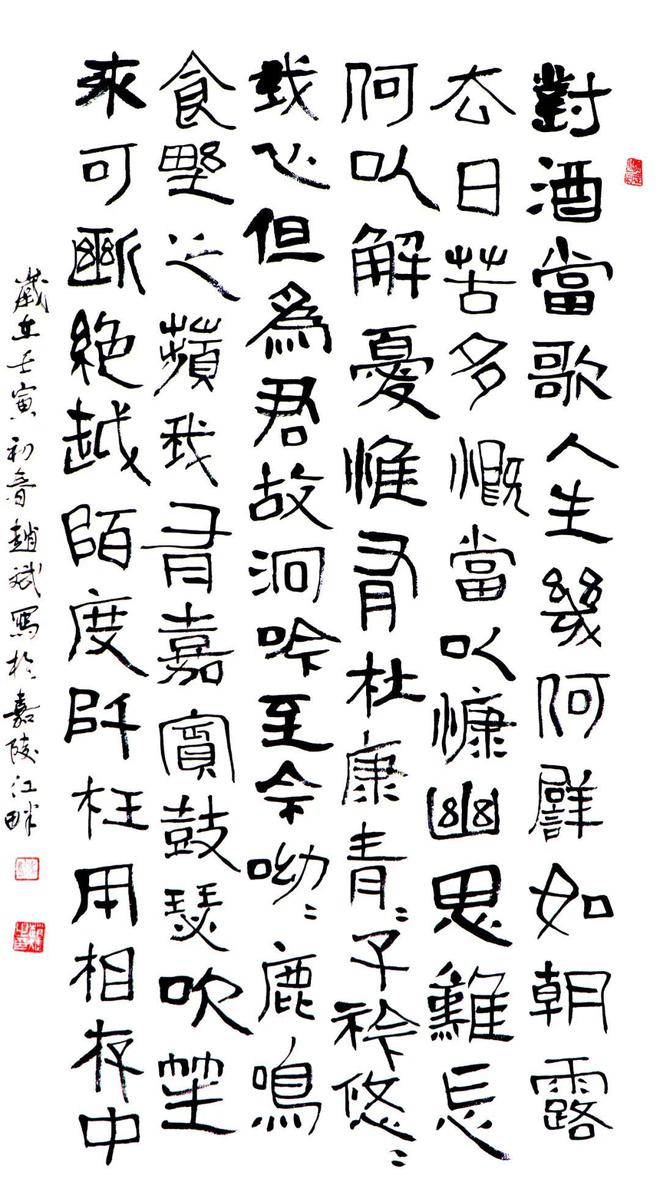 對酒當歌人生幾何譬如朝露
去日苦多慨當以慷幽思難忘
何以解憂惟有杜康青〻子衿悠〻
我心但為君故沉吟至今呦〻鹿鳴
食野之蘋我有嘉賓鼓瑟吹笙
來可斷絕越陌度阡枉用相存中
歲在壬寅初春趙斌寫於嘉陵江畔